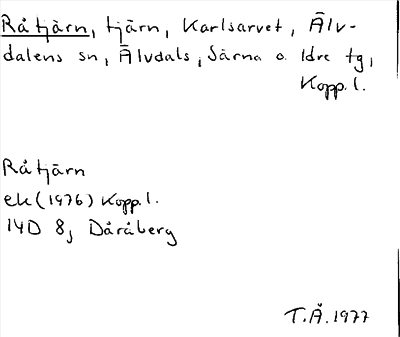 Råtjärn, tjärn, Karlsarvet, Älv-
dalens sn, Älvdals, Särna o. Idre tg,
Kopp. l.
Råtjärn
ek (1976) Kopp. l.
14D 8j Dåråberg
T.Å. 1977